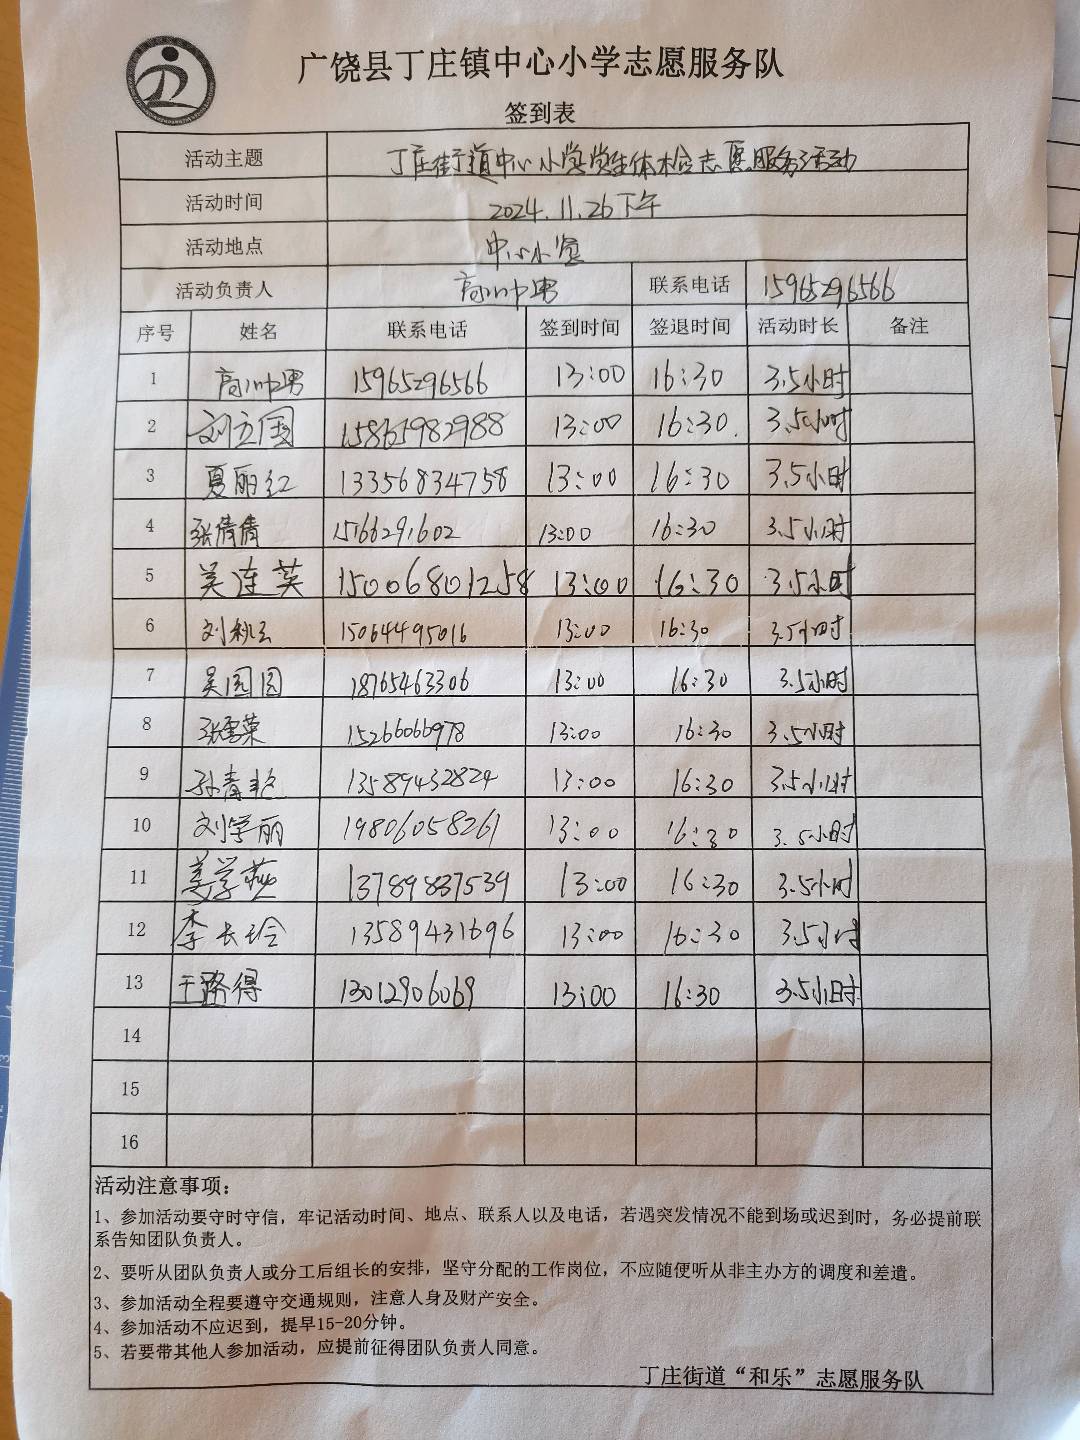 广饶县丁庄镇中心小学志愿服务队
签到表
活动主题 丁庄街道中心小学学生体检志愿服务活动
活动时间 2024.11.26下午
活动地点 中心小学
活动负责人 高帅男 联系电话 15965296566
序号 姓名 联系电话 签到时间 签退时间 活动时长 备注
1 高帅男 15965296566 13:00 16:30 3.5小时
2 刘立国 15865982988 13:00 16:30. 3.5小时
3 夏丽红 13356834758 13:00 16:30 3.5小时
4 张倩倩 15166291602 13:00 16:30 3.5小时
5 吴连英 15006801258 13:00 16:30 3.5小时
6 刘秋云 15064495016 13:00 16:30 3.5小时
7 吴园园 18765463306 13:00 16:30 3.5小时
8 张雪荣 15266066978 13:00 16:30 3.5小时
9 孙青艳 13589432824 13:00 16:30 3.5小时
10 刘学丽 19806058261 13:00 16:30 3.5小时
11 姜学燕 13789837539 13:00 16:30 3.5小时
12 李长玲 13589431696 13:00 16:30 3.5小时
13 王路得 13012906069 13:00 16:30 3.5小时
14
15
16
活动注意事项：
1、参加活动要守时守信，牢记活动时间、地点、联系人以及电话，若遇突发情况不能到场或迟到时，务必提前联
系告知团队负责人。
2、要听从团队负责人或分工后组长的安排，坚守分配的工作岗位，不应随便听从非主办方的调度和差遣。
3、参加活动全程要遵守交通规则，注意人身及财产安全。
4、参加活动不应迟到，提早15-20分钟。
5、若要带其他人参加活动，应提前征得团队负责人同意。
丁庄街道“和乐”志愿服务队